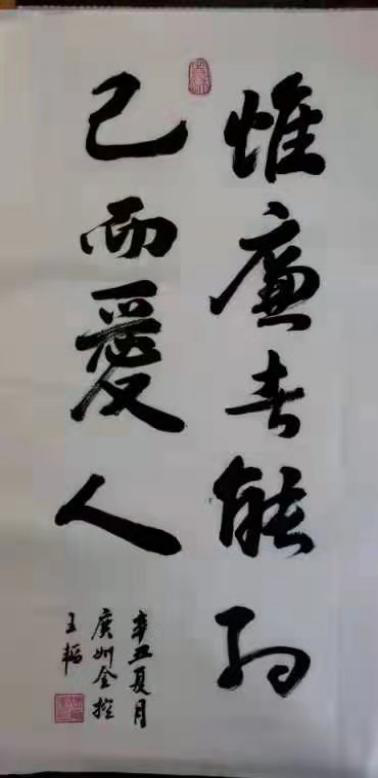 惟廉者能約
己而愛人
辛丑夏月
廣州金控
王韜